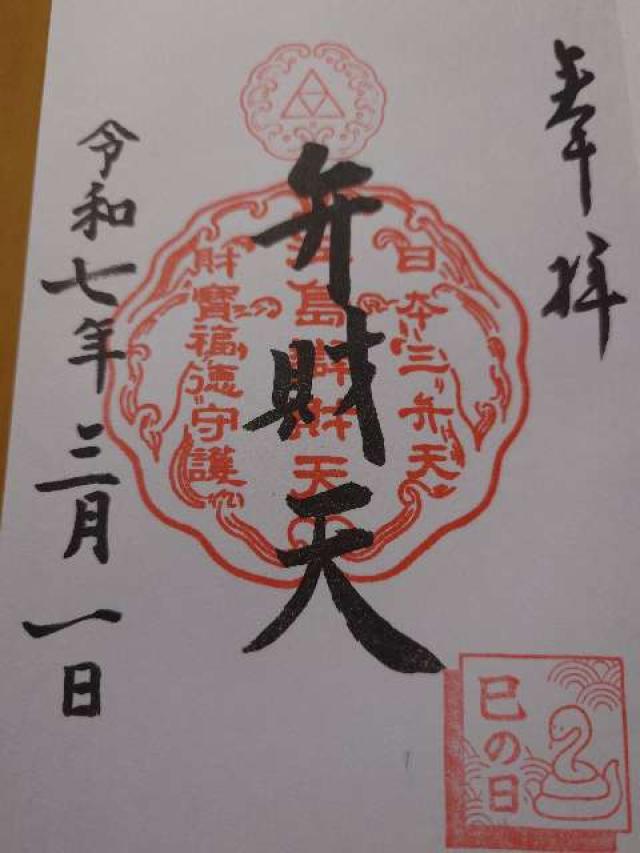 奉拝
日本三弁天
江島辯財天
財寳福徳守護
弁財天
令和七年三月一日
巳の日